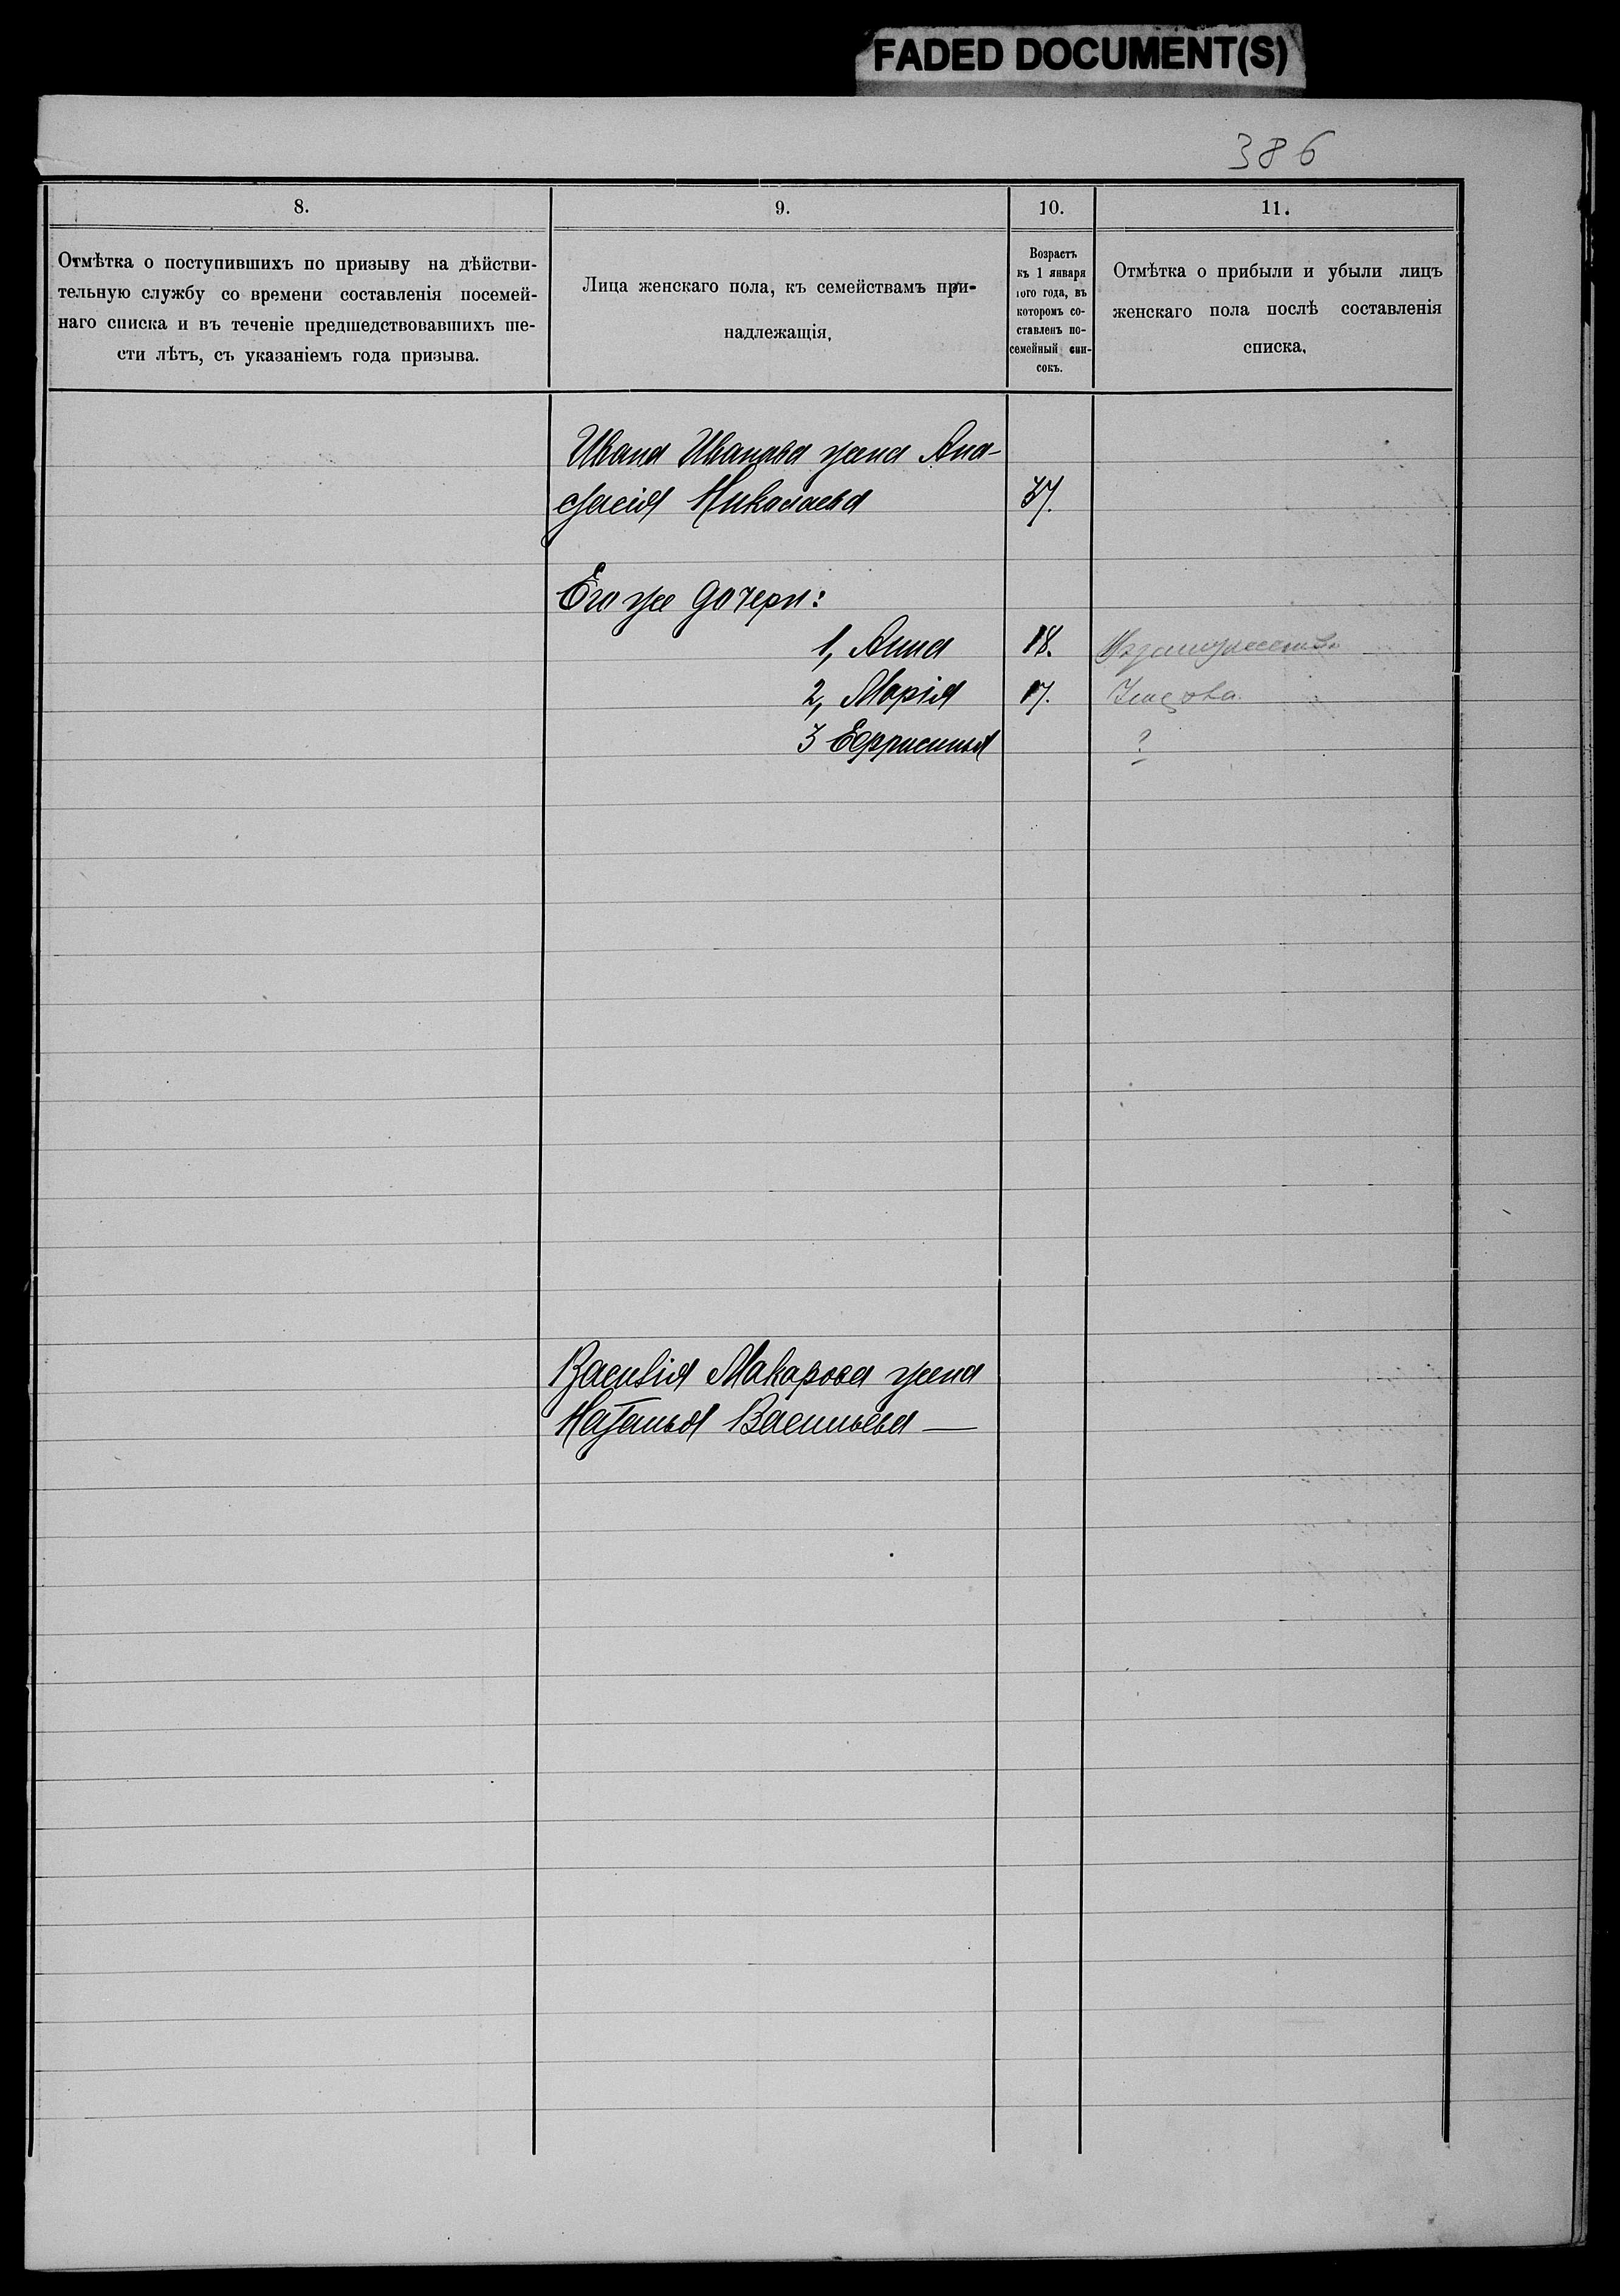 FADED DOCUMENT(S)
386
8.
9.
10.
11.
Отмѣтка о поступившихъ по призыву на дѣйстви-
тельную службу со времени составленія посемей-
наго списка и въ теченіе предшедствовавшихъ ше-
сти лѣтъ, съ указаніемъ года призыва.
Лица женскаго пола, къ семействамъ при-
надлежащія,
Возрастъ
къ 1 января
того года, въ
которомъ со-
ставленъ по-
семейный спи-
сокъ.
Отмѣтка о прибыли и убыли лицъ
женскаго пола послѣ составленія
списка,
Ивана Иванова жена Ана-
стасія Николаева 37.
Его же дочери:
1, Анна 18.
2, Марія 17.
3 Ефросинья ?
Василія Макарова жена
Наталья Васильева —